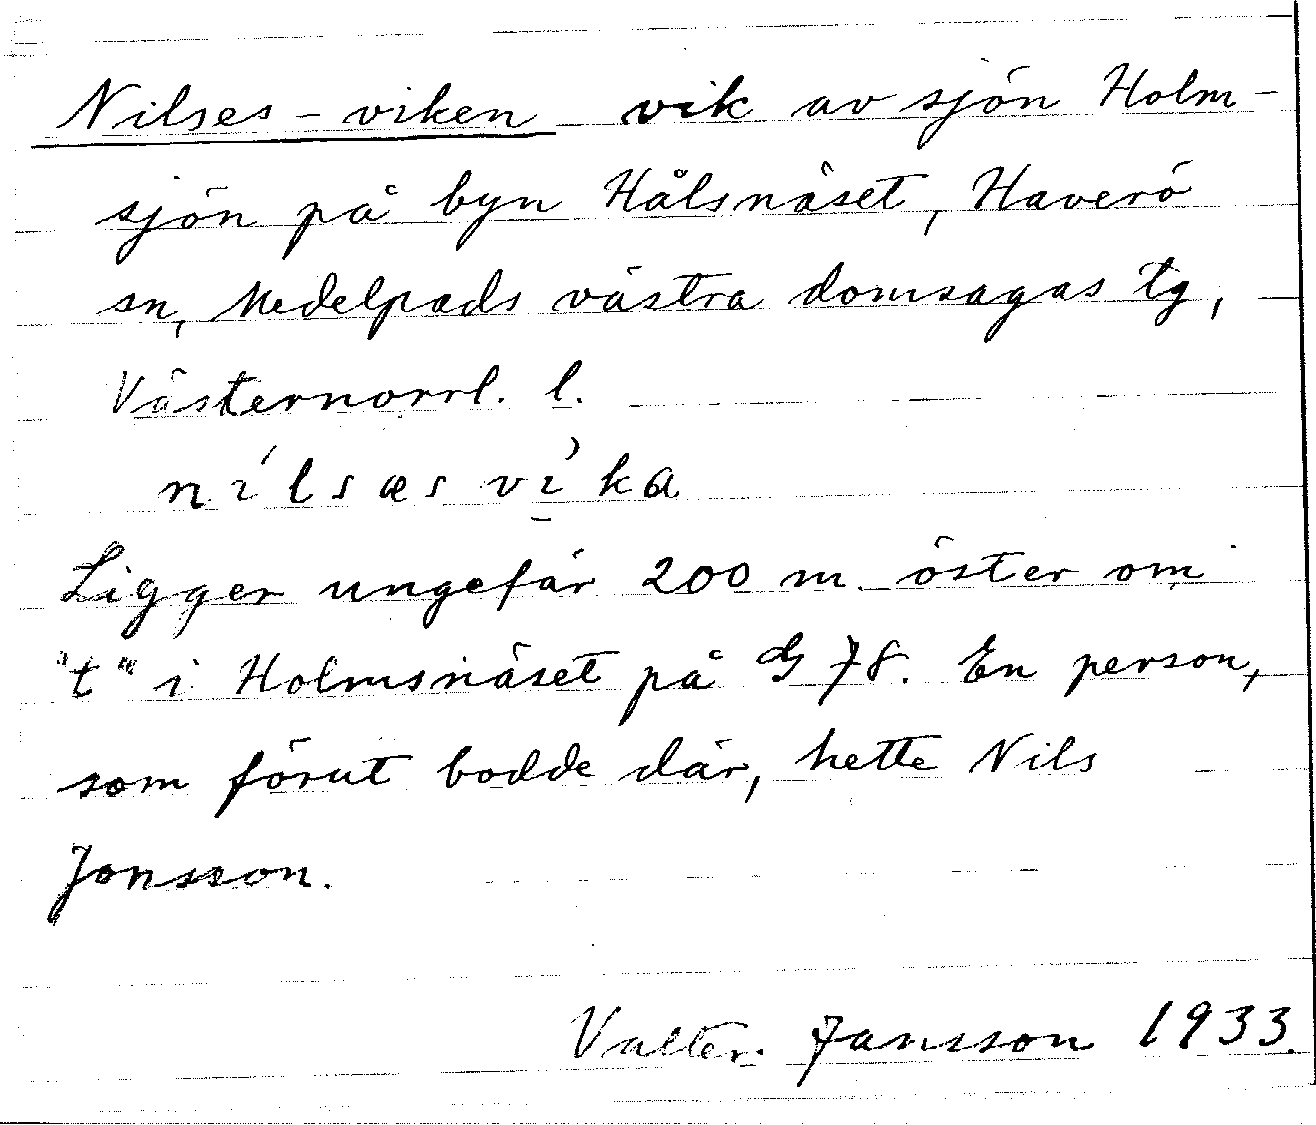 Nilses-viken vik av sjön Holm-
sjön på byn Hålsnäset, Haverö
sn, Medelpads västra domsagas tg,
Västernorrl. l.
nílsæs vìka
Ligger ungefär 200 m. öster om
"t" i Holmsnäset på G 78. En person,
som förut bodde där, hette Nils
Jonsson.
Valter Jansson 1933.